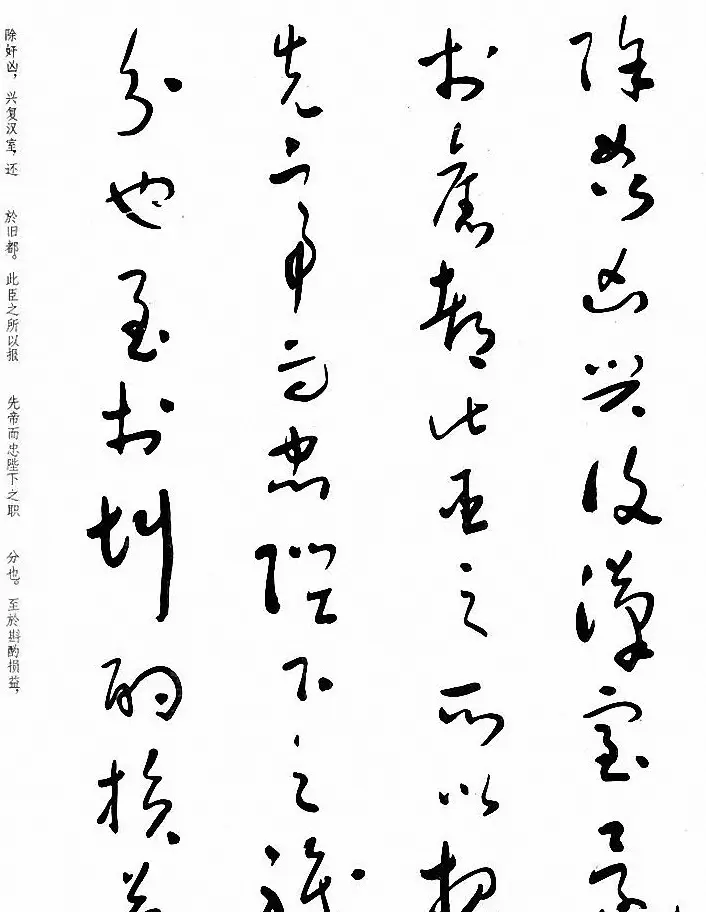 除姦凶興復漢室還
於舊都此臣之所以報
先帝而忠陛下之職
分也至於斟酌損益
除奸凶，兴复汉室，还 於旧都。此臣之所以报 先帝而忠陛下之职 分也。至於斟酌损益，